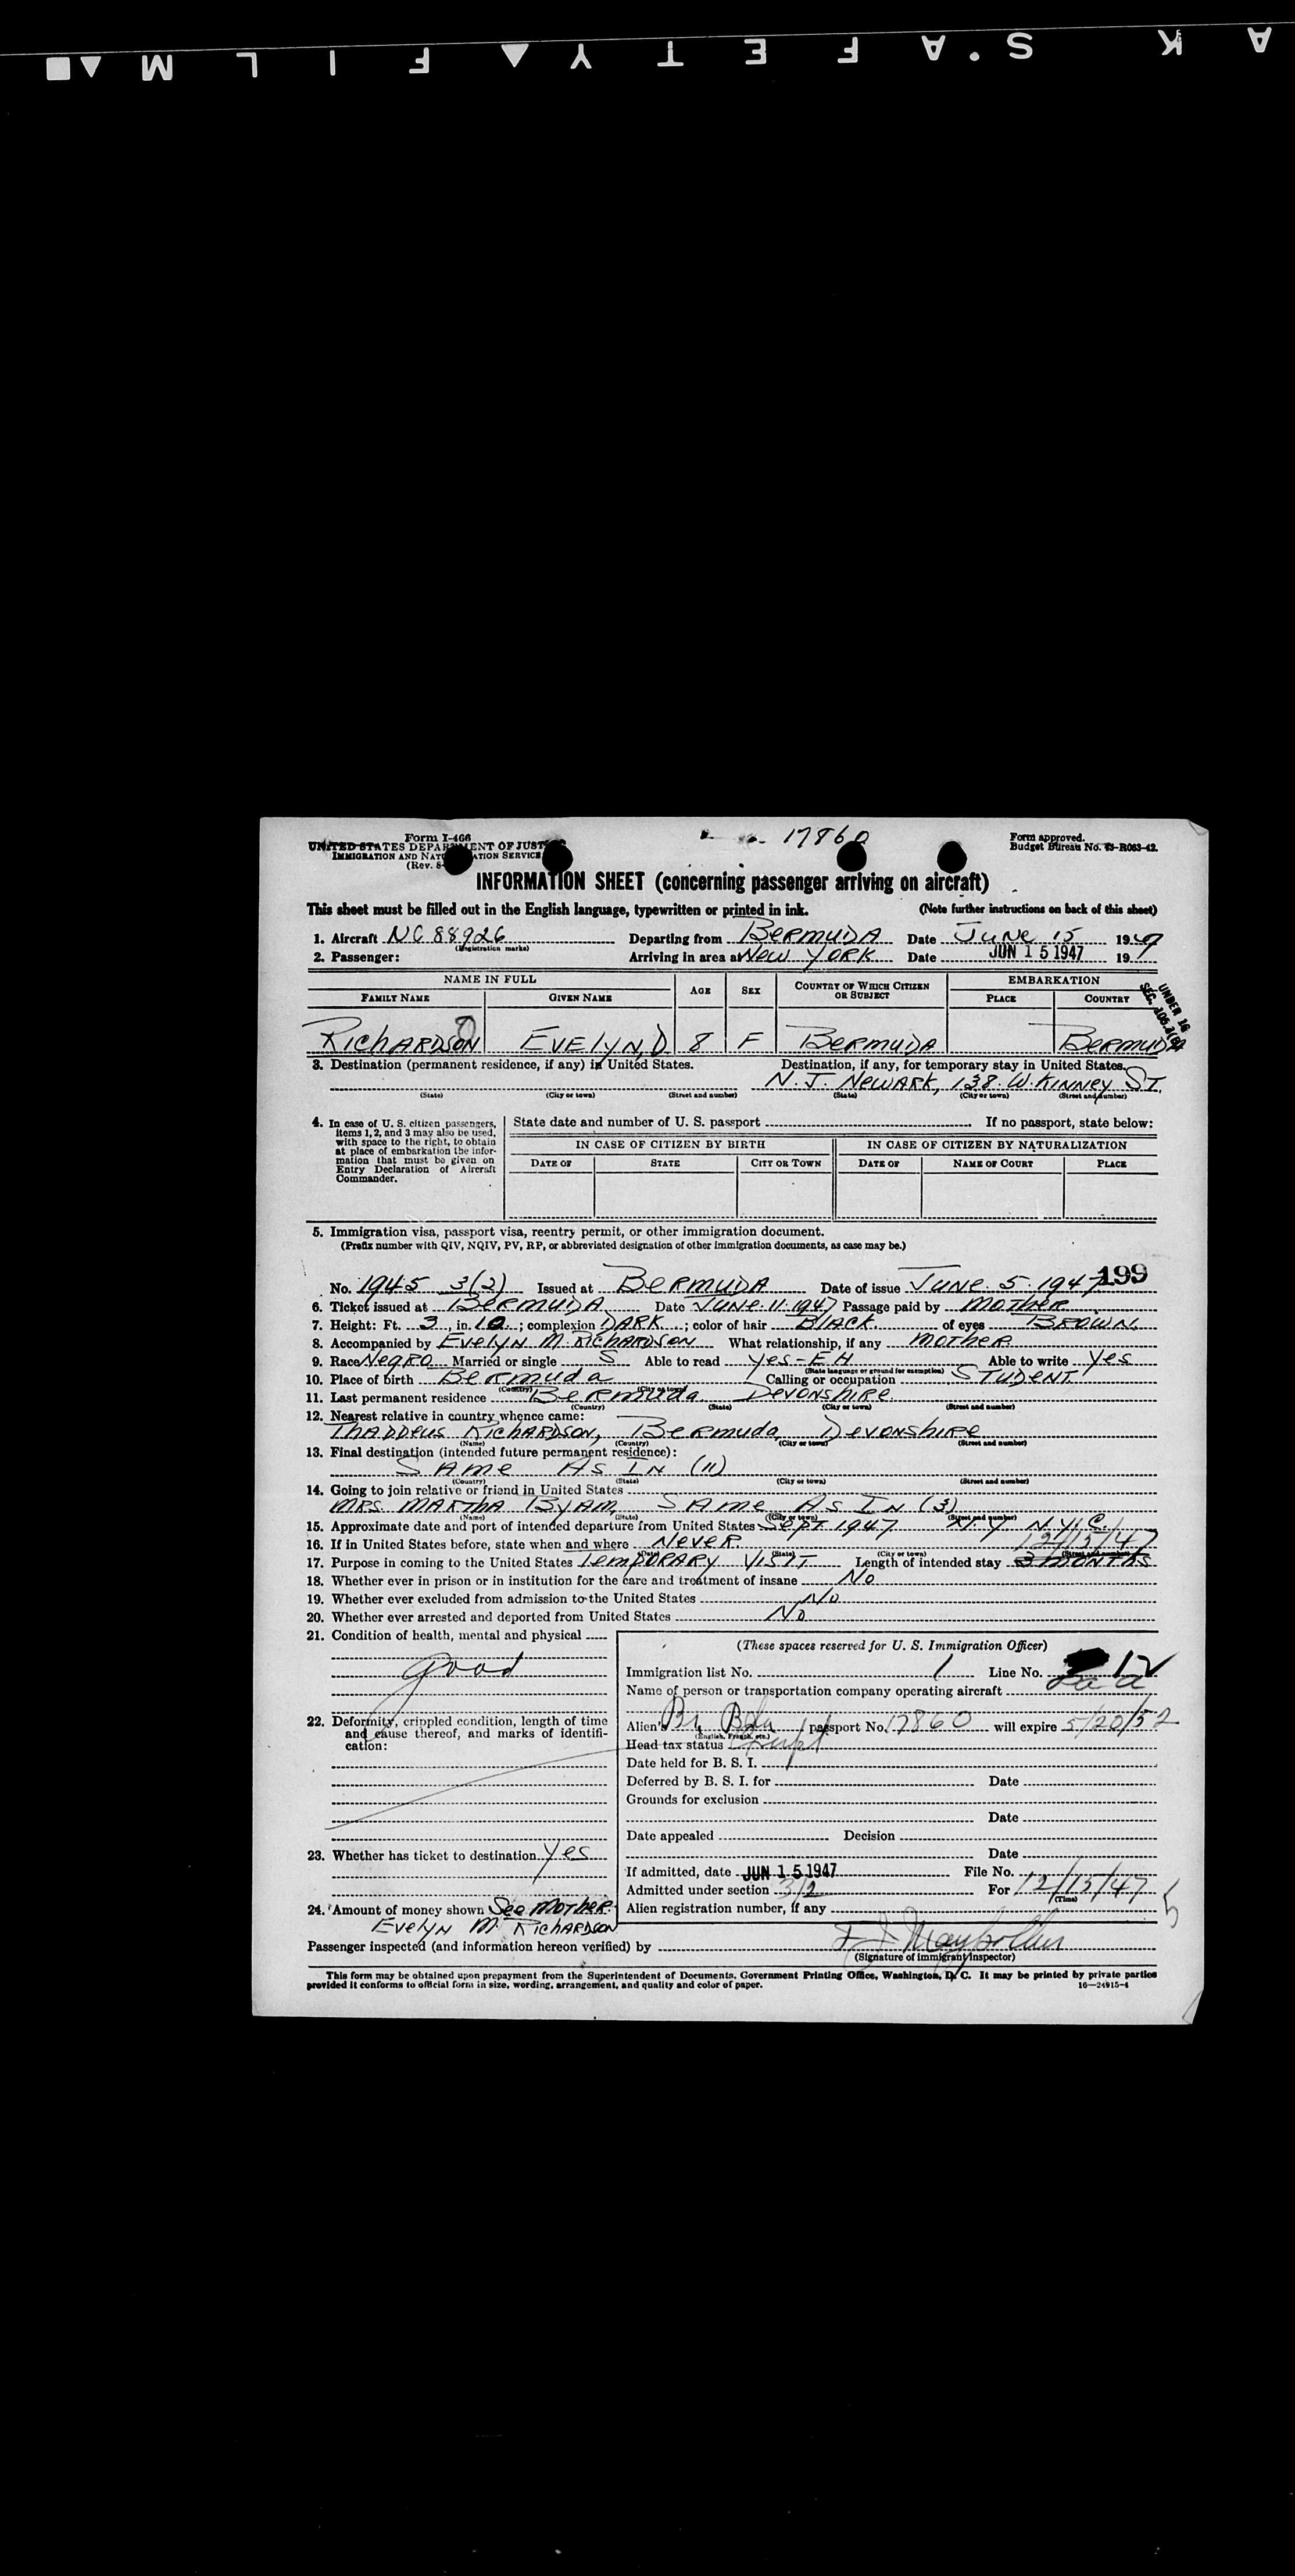 K S'AFETY▲FILM▲■
17860
Form I-466
UNITED STATES DEPARTMENT OF JUSTICE
IMMIGRATION AND NATURALIZATION SERVICE
(Rev. 8-
Form approved.
Budget Bureau No. 43-R063-42.
INFORMATION SHEET (concerning passenger arriving on aircraft)
This sheet must be filled out in the English language, typewritten or printed in ink. (Note further instructions on back of this sheet)
1. Aircraft NC 88926 (Registration marks) Departing from BERMUDA Date JUNE 15 1947
2. Passenger: Arriving in area at NEW YORK Date JUN 15 1947 197
NAME IN FULL AGE SEX COUNTRY OF WHICH CITIZEN OR SUBJECT EMBARKATION
FAMILY NAME GIVEN NAME PLACE COUNTRY
UNDER 16
RICHARDSON EVELYN, D 8 F BERMUDA BERMUDA
3. Destination (permanent residence, if any) in United States. Destination, if any, for temporary stay in United States.
N. J. NEWARK, 138. W. KINNEY ST.
(State) (City or town) (Street and number) (State) (City or town) (Street and number)
4. In case of U. S. citizen passengers, items 1, 2, and 3 may also be used, with space to the right, to obtain at place of embarkation the information that must be given on Entry Declaration of Aircraft Commander.
State date and number of U. S. passport If no passport, state below:
IN CASE OF CITIZEN BY BIRTH IN CASE OF CITIZEN BY NATURALIZATION
DATE OF STATE CITY OR TOWN DATE OF NAME OF COURT PLACE
5. Immigration visa, passport visa, reentry permit, or other immigration document.
(Prefix number with QIV, NQIV, PV, RP, or abbreviated designation of other immigration documents, as case may be.)
199
No. 1945 3(2) Issued at BERMUDA Date of issue JUNE. 5. 1947
6. Ticket issued at BERMUDA Date JUNE. 11. 1947 Passage paid by MOTHER
7. Height: Ft. 3, in. 10; complexion DARK; color of hair BLACK. of eyes BROWN
8. Accompanied by EVELYN M. RICHARDSON What relationship, if any MOTHER
9. Race NEGRO Married or single S Able to read YES - EH Able to write YES
(State language or ground for exemption)
10. Place of birth Bermuda Calling or occupation STUDENT
(Country) (City or town)
11. Last permanent residence Bermuda DEVONSHIRE.
(Country) (State) (City or town) (Street and number)
12. Nearest relative in country whence came:
THADDEUS RICHARDSON, Bermuda, DEVONSHIRE
(Name) (Country) (City or town) (Street and number)
13. Final destination (intended future permanent residence):
SAME AS IN (11)
(Country) (State) (City or town) (Street and number)
14. Going to join relative or friend in United States
MRS. MARTHA BYAM, SAME AS IN (3)
(Name) (State) (City or town) (Street and number)
15. Approximate date and port of intended departure from United States SEPT 1947 N.Y N.Y.C.
16. If in United States before, state when and where NEVER.
(Date) (State) (City or town) (Street and number)
12/15/47
17. Purpose in coming to the United States TEMPORARY VISIT Length of intended stay 3 MONTHS
18. Whether ever in prison or in institution for the care and treatment of insane No
19. Whether ever excluded from admission to the United States No
20. Whether ever arrested and deported from United States No
21. Condition of health, mental and physical
good
22. Deformity, crippled condition, length of time and cause thereof, and marks of identification:
23. Whether has ticket to destination yes
24. Amount of money shown See MOTHER
EVELYN M. RICHARDSON
(These spaces reserved for U. S. Immigration Officer)
Immigration list No. 1 Line No. 12
Name of person or transportation company operating aircraft
Alien's Br. passport No. 17860 will expire 5/20/52
(English, French, etc.)
Head tax status Exempt
Date held for B. S. I.
Deferred by B. S. I. for Date
Grounds for exclusion
Date
Date appealed Decision
Date
If admitted, date JUN 15 1947 File No.
Admitted under section 3/2 For 12/15/47
(Time)
Alien registration number, if any
Passenger inspected (and information hereon verified) by
(Signature of immigrant inspector)
This form may be obtained upon prepayment from the Superintendent of Documents, Government Printing Office, Washington, D. C. It may be printed by private parties
provided it conforms to official form in size, wording, arrangement, and quality and color of paper.
16—24915-4